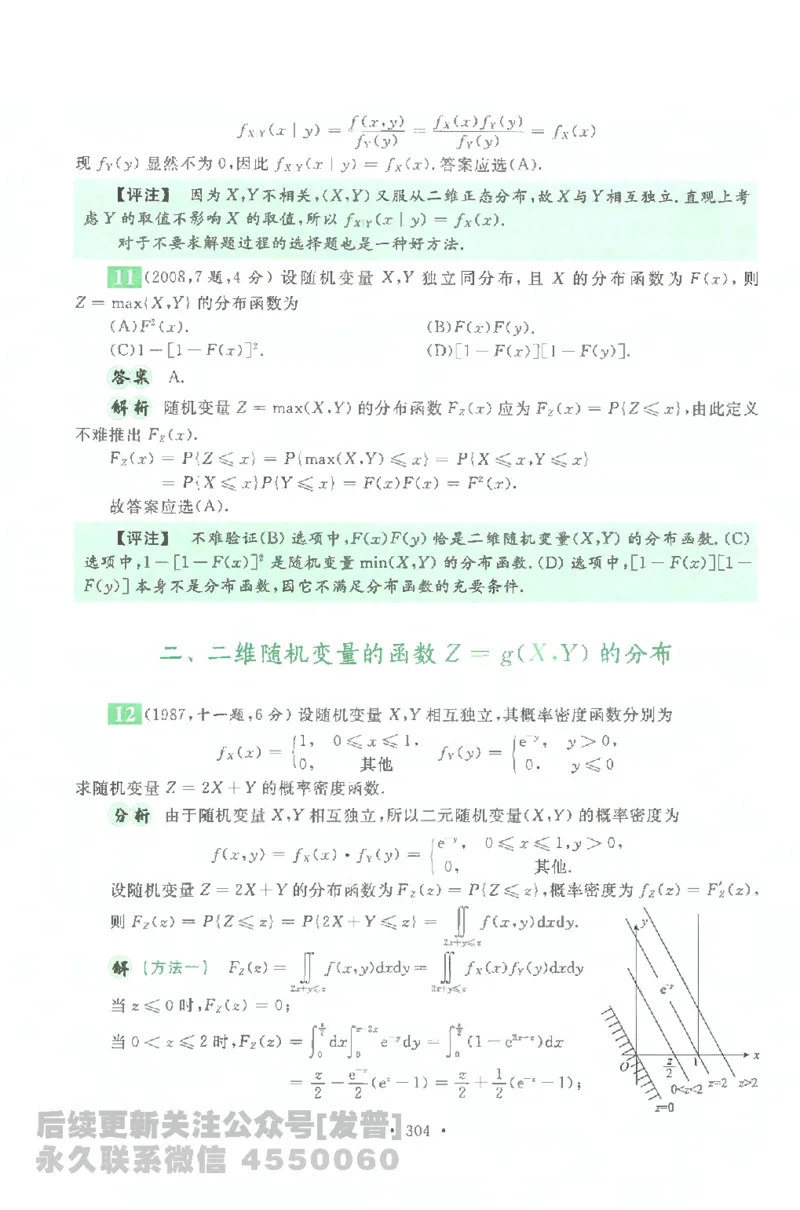 f_{X|Y}(x | y) = f(x,y)/f_Y(y) = f_X(x)f_Y(y)/f_Y(y) = f_X(x)
现 f_Y(y) 显然不为 0,因此 f_{X|Y}(x | y) = f_X(x). 答案应选(A).
【评注】 因为 X,Y 不相关,(X,Y) 又服从二维正态分布,故 X 与 Y 相互独立. 直观上考
虑 Y 的取值不影响 X 的取值,所以 f_{X|Y}(x | y) = f_X(x).
对于不要求解题过程的选择题也是一种好方法.
11 (2008,7 题,4 分) 设随机变量 X,Y 独立同分布, 且 X 的分布函数为 F(x), 则
Z = max{X,Y} 的分布函数为
(A)F²(x). (B)F(x)F(y).
(C)1-[1-F(x)]². (D)[1-F(x)][1-F(y)].
答案 A.
解析 随机变量 Z = max(X,Y) 的分布函数 F_Z(x) 应为 F_Z(x) = P{Z ⩽ x},由此定义
不难推出 F_Z(x).
F_Z(x) = P{Z ⩽ x} = P{max(X,Y) ⩽ x} = P{X ⩽ x,Y ⩽ x}
= P{X ⩽ x}P{Y ⩽ x} = F(x)F(x) = F²(x).
故答案应选(A).
【评注】 不难验证(B) 选项中,F(x)F(y) 恰是二维随机变量(X,Y) 的分布函数. (C)
选项中,1-[1-F(x)]² 是随机变量 min(X,Y) 的分布函数. (D) 选项中,[1-F(x)][1-
F(y)] 本身不是分布函数,因它不满足分布函数的充要条件.
二、二维随机变量的函数 Z = g(X,Y) 的分布
12 (1987,十一题,6 分) 设随机变量 X,Y 相互独立,其概率密度函数分别为
f_X(x) = {1, 0 ⩽ x ⩽ 1, f_Y(y) = {e^{-y}, y > 0,
0, 其他 0, y ⩽ 0
求随机变量 Z = 2X+Y 的概率密度函数.
分析 由于随机变量 X,Y 相互独立,所以二元随机变量(X,Y) 的概率密度为
f(x,y) = f_X(x)·f_Y(y) = {e^{-y}, 0 ⩽ x ⩽ 1,y > 0,
0, 其他.
设随机变量 Z = 2X+Y 的分布函数为 F_Z(z) = P{Z ⩽ z},概率密度为 f_Z(z) = F′_Z(z),
则 F_Z(z) = P{Z ⩽ z} = P{2X+Y ⩽ z} = ∬_{2x+y⩽z} f(x,y)dxdy.
解 (方法一) F_Z(z) = ∬_{2x+y⩽z} f(x,y)dxdy = ∬_{2x+y⩽z} f_X(x)f_Y(y)dxdy
当 z ⩽ 0 时,F_Z(z) = 0;
当 0 < z ⩽ 2 时,F_Z(z) = ∫_0^{z/2} dx ∫_0^{z-2x} e^{-y}dy = ∫_0^{z/2} (1-e^{2x-z})dx
= z/2 - e^{-z}/2 (e^z-1) = z/2 + 1/2 (e^{-z}-1);
y
e^{-y}
O z/2 1 x
0<z<2 z=2 z>2
z=0
· 304 ·
后续更新关注公众号[发普]
永久联系微信 4550060